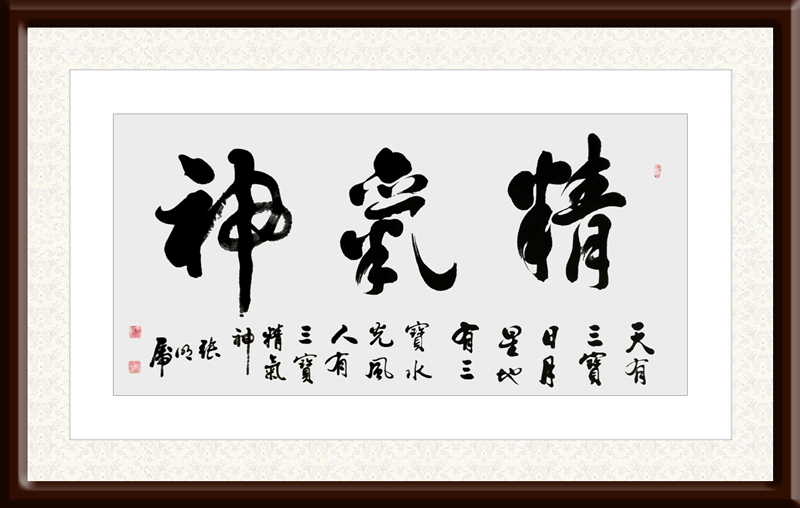 精氣神
天有
三寶
日月
星地
有三
寶水
光風
人有
三寶
精氣
神
張
明
虎